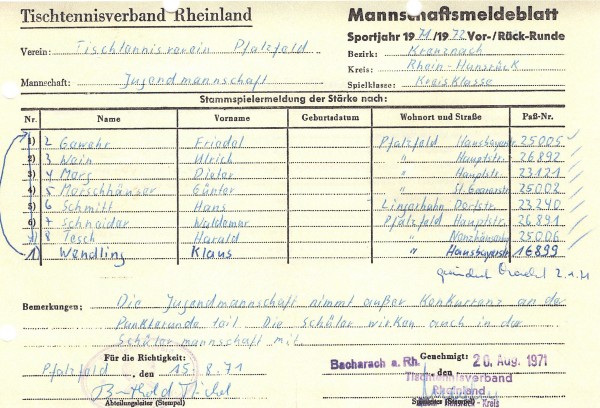 Tischtennisverband Rheinland
Mannschaftsmeldeblatt
Sportjahr 1971/1972 Vor-/Rück-Runde
Verein: Tischtennisverein Pfalzfeld
Bezirk: Kreuznach
Kreis: Rhein-Hunsrück
Mannschaft: Jugendmannschaft
Spielklasse: Kreisklasse
Stammspielermeldung der Stärke nach:
Nr. Name Vorname Geburtsdatum Wohnort und Straße Paß-Nr.
1) 2 Gewehr Friedel Pfalzfeld 25005
2) 3 Wein Ulrich " Hauptstr. 26892
3) 4 Marg Dieter " Hauptstr. 23121
4) 5 Marschhäuser Günter " St. Goarerstr. 25002
5) 6 Schmitt Hans Lingerhahn Dorfstr. 23240
6) 7 Schneider Waldemar Pfalzfeld Hauptstr. 26891
8 Tesch Harald " 25006
1) Wendling Klaus " Hausbayerstr. 16899
2.1.71
Bemerkungen: Die Jugendmannschaft nimmt außer Konkurrenz an der
Punkterunde teil. Die Schüler wirken auch in der
Schülermannschaft mit
Für die Richtigkeit:
Genehmigt: 20. Aug. 1971
Pfalzfeld, den 15.8.71
Bacharach a. Rh. , den
Tischtennisverband
Rheinland
Abteilungsleiter (Stempel)